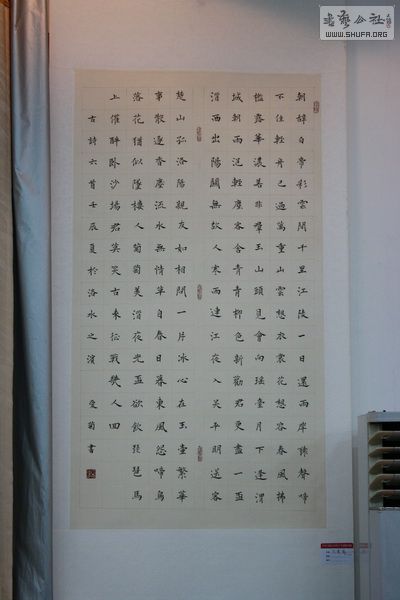 書藝公社
WWW.SHUFA.ORG
朝辭白帝彩雲間千里江陵一日還兩岸猿聲啼
不住輕舟已過萬重山雲想衣裳花想容春風拂
檻露華濃若非羣玉山頭見會向瑤臺月下逢渭
城朝雨浥輕塵客舍青青柳色新勸君更盡一盃
酒西出陽關無故人寒雨連江夜入吴平明送客
楚山孤洛陽親友如相問一片冰心在玉壺繁華
事散逐香塵流水無情草自春日暮東風怨啼鳥
落花猶似墜樓人葡萄美酒夜光盃欲飲琵琶馬
上催醉卧沙場君莫笑古來征戰幾人回
古詩六首壬辰夏於洛水之濱 愛菊書